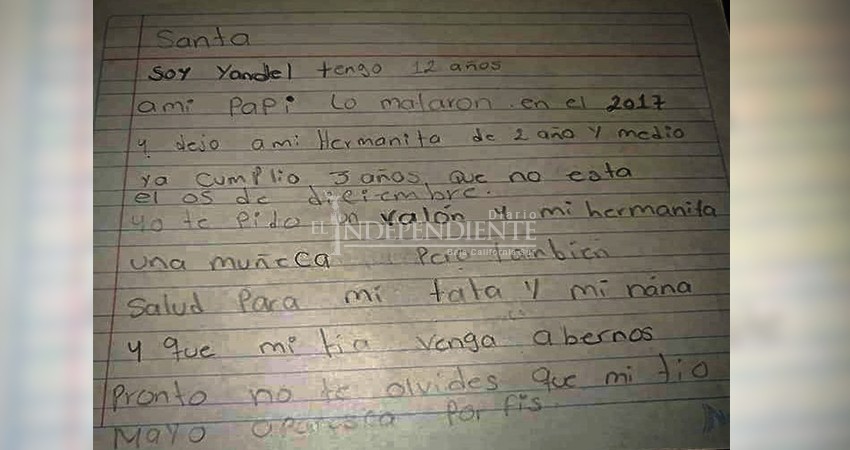 Santa
Soy Yandel tengo 12 años
ami papi lo mataron en el 2017
y dejo ami Hermanita de 2 año y medio
ya cumplio 3 años que no esta
el 05 de dieiembre.
yo te pido un valón y mi hermanita
Diario
EL INDEPENDIENTE
Baja California Sur
una muñeca Pero tanbien
Salud Para mi tata y mi nana
y que mi tia venga abernos
Pronto no te olvides que mi tio
Mayo aparesca Por fis